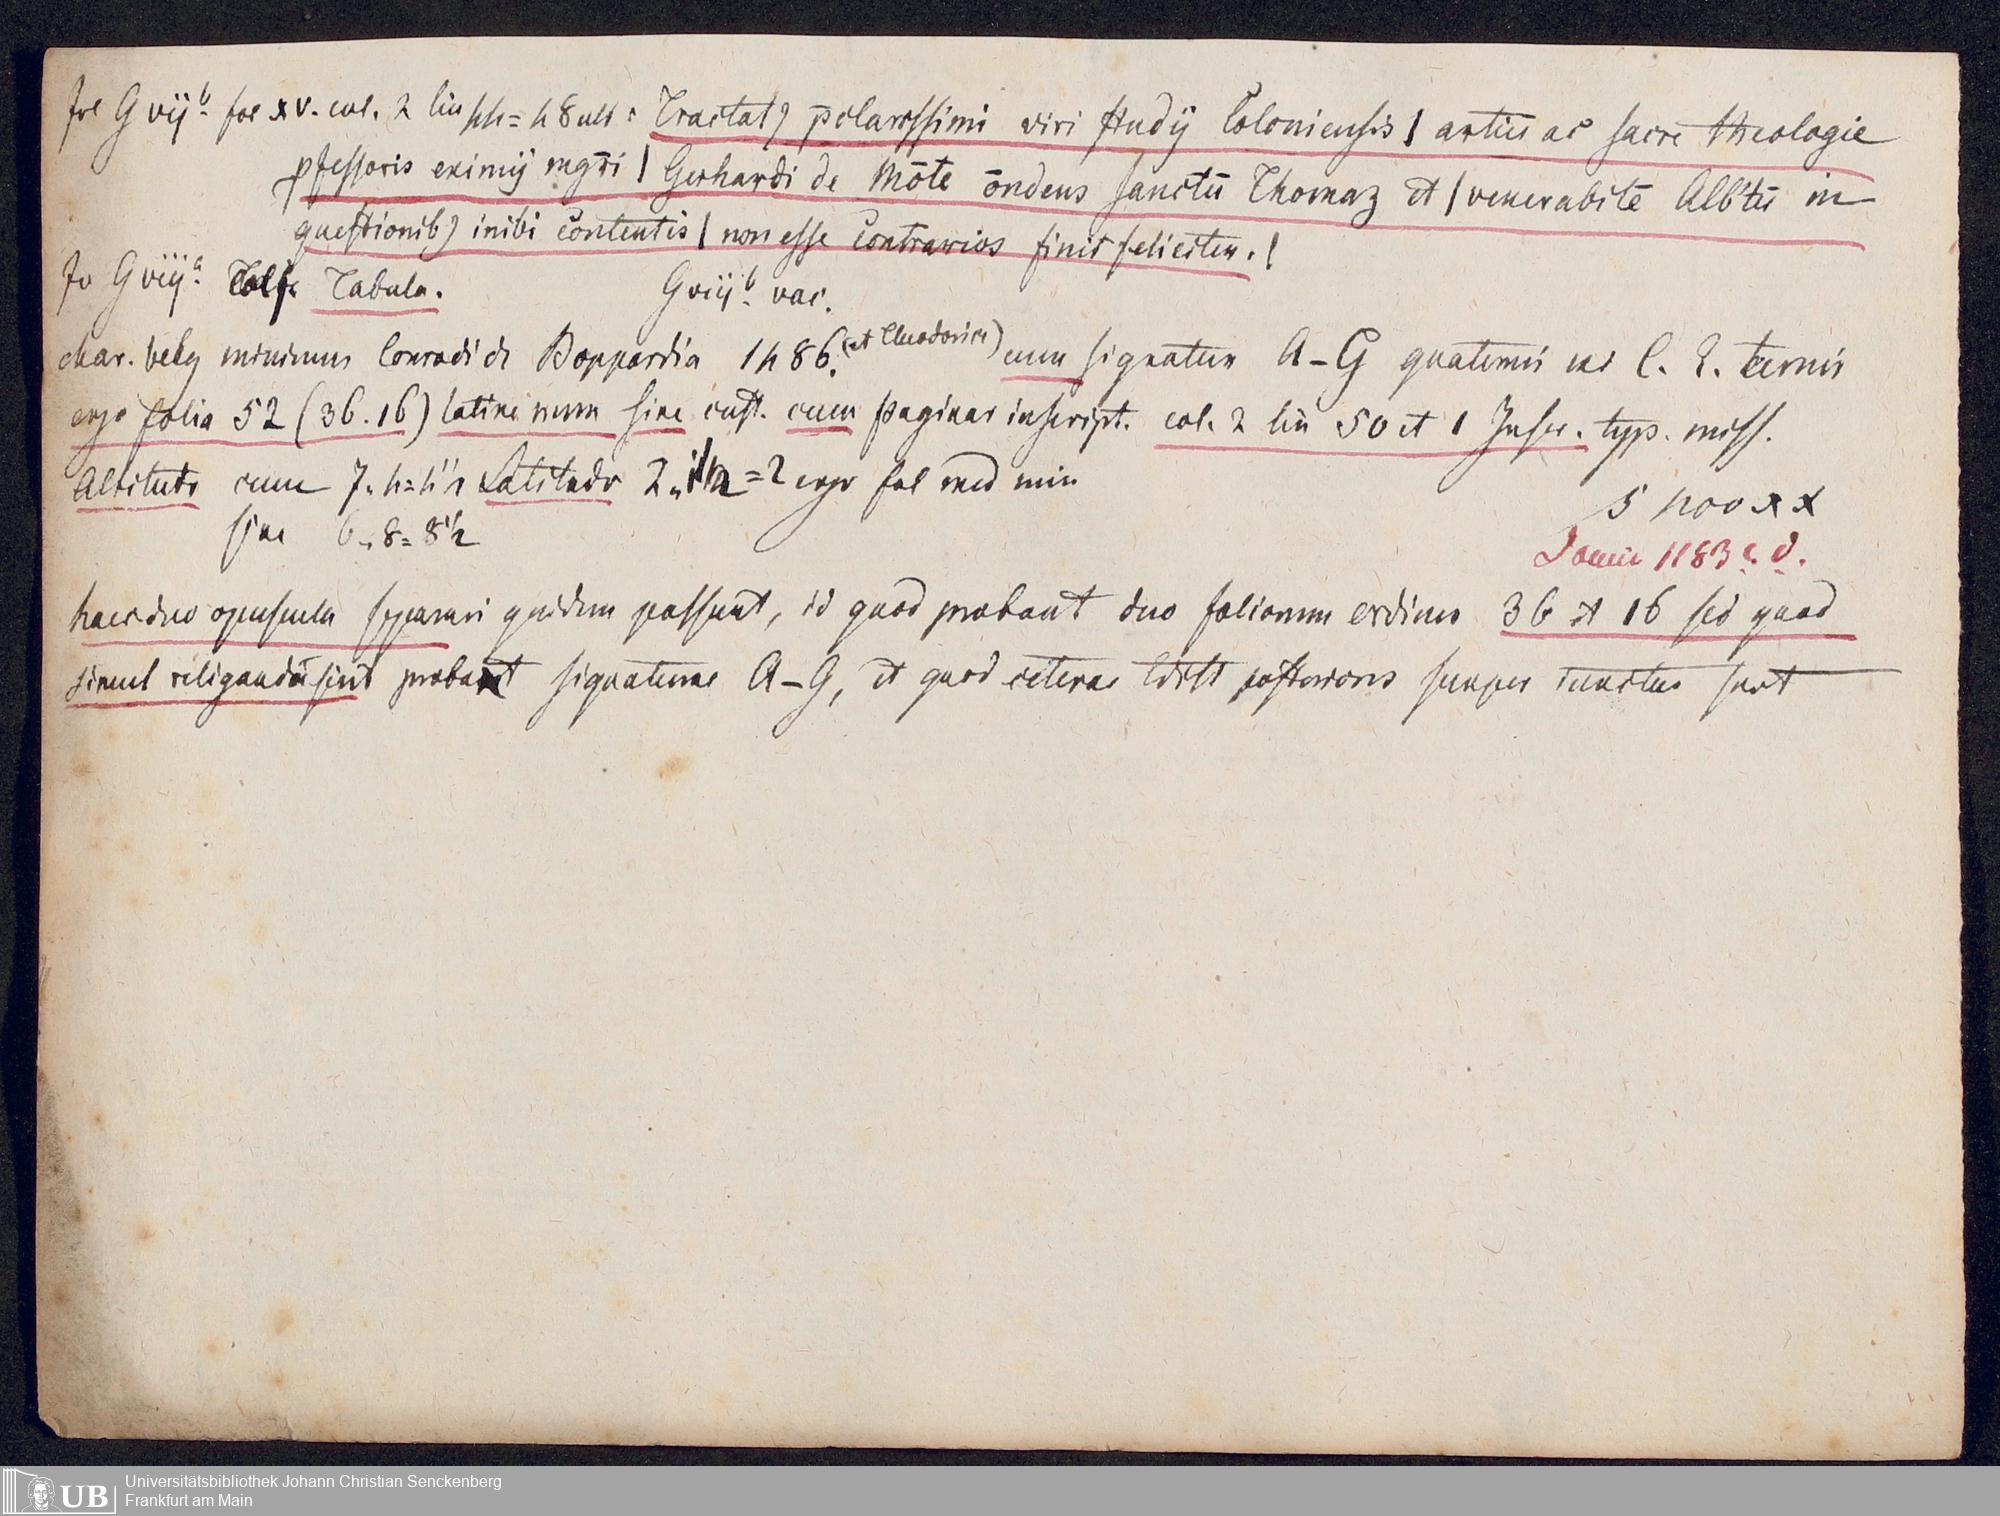 fol G vij b. fol xv. col. 2 lin 44=48 ult: Tractatꝰ p̄clarissimi viri studij Coloniensis | artiū ac sacre theologie
ꝓfessoris eximij mgr̄i | Gerhardi de Mōte ōndens sanctū Thomaz et | venerabilē Alb'tū in
questionibꝰ inibi contentis | non esse contrarios finit feliciter. |
fo G viij a. Tabula. G viij b. vac.
char. belg minimus Conradi de Boppardia 1486. (et Theodorici) cum signatur A–G quaternis C. E. ternis
ergo folia 52 (36. 16) latine num sine cust. cum paginar inscript. col. 2 lin 50 et 1 Inscr. typ. miss.
Altitudo cum 7„ 4=4½ Latitudo 2„ =2 ergo fol med min
sine 6„ 8=8½
5 400 x x
1183 c. d.
haec duo opuscula separari quidem possunt, id quod probant duo foliorum ordines 36 et 16 sed quod
simul religanda sint probant signaturae A–G, et quod ceterae posterioris semper iunctus sunt
Universitätsbibliothek Johann Christian Senckenberg
Frankfurt am Main
UB